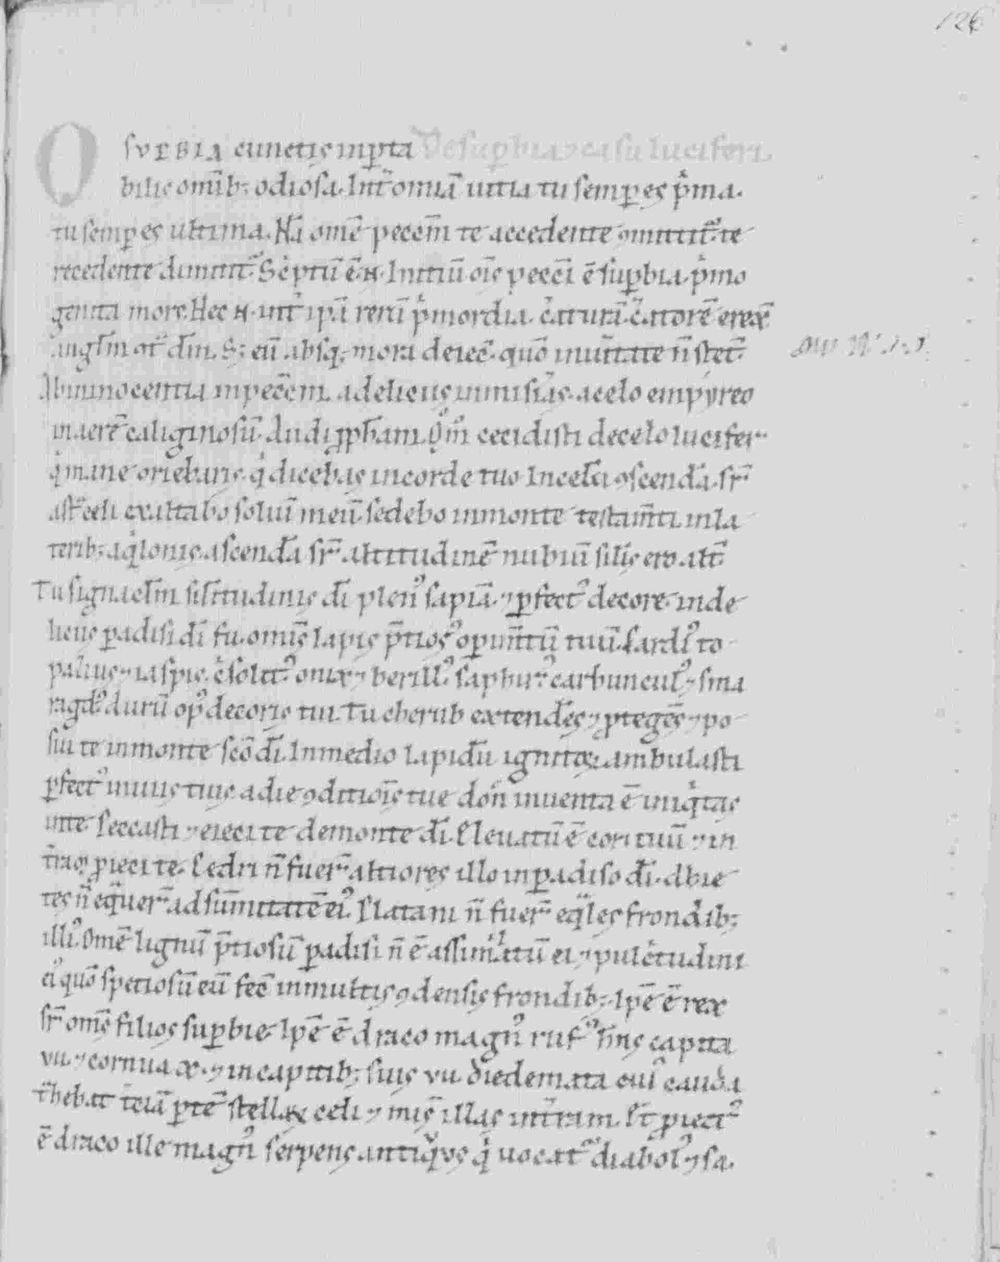 126
O SVPERBIA cunctis inp̄ta De sup̄bia ⁊ casu luciferi.
bilis om̄ib; odiosa. Int̄ om̄ia uitia tu semp̄ es p̄ma.
tu semp̄ es ultima. Nā om̄e peccm̄ te accedente ꝯmittit᷑. te
recedente dimittit᷑. Sc̄ptū ē .n. Initiū om̄s pecci ē sup̄bia. p̄mo
genita mors. Hec .n. int̄ ipā rerū p̄mordia. c̄aturā c̄atorē erex̄
anglm̄ ꝯt̄ dm̄. S; eū absq; mora deiec̄. quō in uitate n̄ stet̄.
Ab innocentia in pecc̄m. a deliciis in mis̄ias. a celo empyreo
in aerē caliginosū. Audi ꝓph̄am. Qm̄ cecidisti de celo lucifer
q̄ mane oriebaris. q̄ dicebas in corde tuo. In celū ꝯscendā. sr̄
astra celi exaltabo soliū meū. sedebo in monte testam̄ti. in la
terib; aq̄lonis. ascendā sr̄ altitudinē nubiū. sil̄is ero alt̄.
Tu signaclm̄ sil̄itudinis dī plen᷒ sapia. ⁊ p̄fect᷒ decore. in de
liciis padisi dī fu. om̄is lapis p̄tios᷒ opim̄tū tuū. Sardi᷒ to
pazius ⁊ iaspis. c̄solit᷒ onix ⁊ berill᷒. saphir᷒ carbuncul᷒ ⁊ sma
ragd᷒ durū op᷒ decoris tui. Tu cherub extend̄es ⁊ ꝓteḡes ⁊ po
sui te in monte sc̄o dī. In medio lapidū ignitoꝝ ambulasti
p̄fect᷒ in uiis tuis a die ꝯditiōis tue don̄ inuenta ē iniq̄tas
in te. Peccasti ⁊ eieci te de monte dī. Eleuatū ē cor tuū ⁊ in
t̄rā ꝓieci te. Cedri n̄ fuer̄ altiores illo in padiso dī. Abie
tes n̄ eq̄uer̄ ad sum̄itatē ei᷒. Platani n̄ fuer̄ eq̄les frondib;
illi᷒. Om̄e lignū p̄tiosū padisi n̄ ē assimilatū ei ⁊ pulc̄tudini
ei᷒ quō spetiosū eū fec̄ in multis ꝯdensis frondib;. Ipē ē rex
sr̄ om̄s filios sup̄bie. Ipē ē draco magn᷒ ruf᷒ h̄ns capita
vii. ⁊ cornua x. ⁊ in capitib; suis vii. diademata cui᷒ cauda
t̄hebat t̄ciā p̄tē stellaꝝ celi ⁊ mis̄ illas in t̄ram. Et ꝓiect᷒
ē draco ille magn᷒ serpens antiq̄us q̄ uocat᷑ diabol᷒ ⁊ sa.